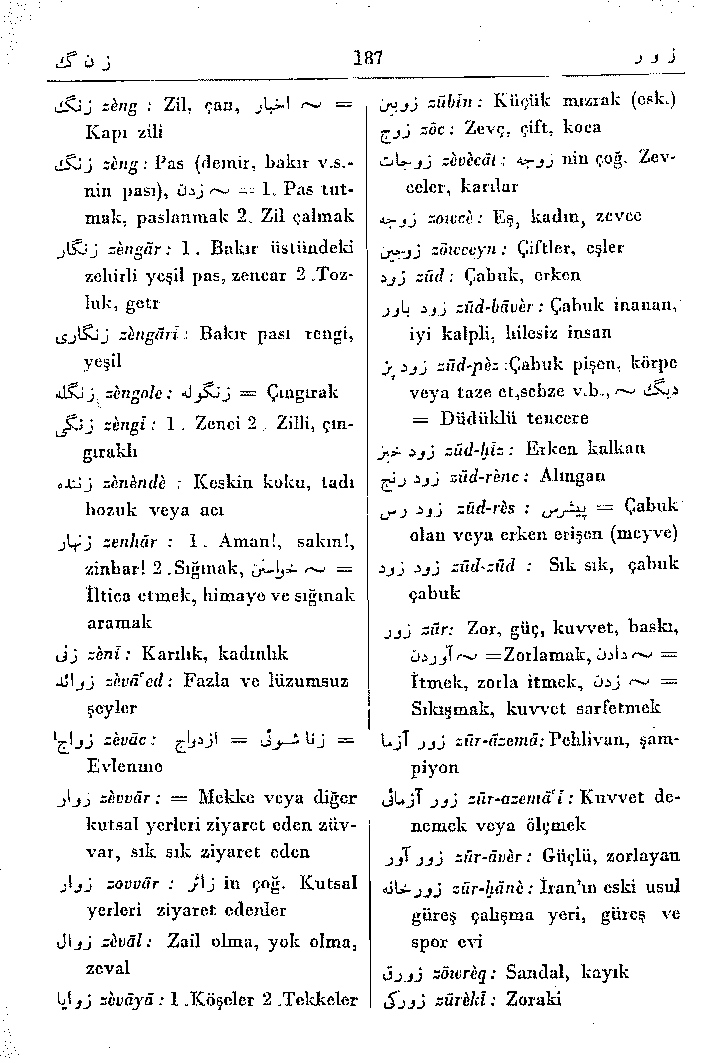 زن گ
187
زور
زنگ zèng : Zil, çan, اخبار ~ =
Kapı zili
زنگ zèng : Pas (demir, bakır v.s.-
nin pası), زدن ~ = 1. Pas tut-
mak, paslanmak 2. Zil çalmak
زنگار zèngār : 1. Bakır üstündeki
zehirli yeşil pas, zencar 2 .Toz-
luk, getr
زنگاری zèngārī : Bakır pası rengi,
yeşil
زنگله zèngole : زنگوله = Çıngırak
زنگی zèngī : 1. Zenci 2. Zilli, çın-
gıraklı
زننده zènèndè : Keskin koku, tadı
bozuk veya acı
زنهار zenhār : 1. Aman!, sakın!,
zinhar! 2 .Sığınak, خواستن ~ =
İltica etmek, himaye ve sığınak
aramak
زنی zènī : Karılık, kadınlık
زوائد zèvā'ed : Fazla ve lüzumsuz
şeyler
زواج zèvāc : ازدواج = زناشوئی =
Evlenme
زوار zèvvār : = Mekke veya diğer
kutsal yerleri ziyaret eden züv-
var, sık sık ziyaret eden
زوار zovvār : زائر in çoğ. Kutsal
yerleri ziyaret edenler
زوال zèvāl : Zail olma, yok olma,
zeval
زوایا zèvāyā : 1 .Köşeler 2 .Tekkeler
زوبین zūbīn : Küçük mızrak (esk.)
زوج zōc : Zevç, çift, koca
زوجات zèvècāt : زوجه nin çoğ. Zev-
celer, karılar
زوجه zowcè : Eş, kadın, zevce
زوجین zōwceyn : Çiftler, eşler
زود zūd : Çabuk, erken
زود باور zūd-bāvèr : Çabuk inanan,
iyi kalpli, hilesiz insan
زود پز zūd-pèz :Çabuk pişen, körpe
veya taze et,sebze v.b., دیگ ~
= Düdüklü tencere
زود خیز zūd-ḫīz : Erken kalkan
زود رنج zūd-rènc : Alıngan
زود رس zūd-rès : پیشرس = Çabuk
olan veya erken erişen (meyve)
زود زود zūd-zūd : Sık sık, çabuk
çabuk
زور zūr: Zor, güç, kuvvet, baskı,
آوردن ~ =Zorlamak, دادن ~ =
İtmek, zorla itmek, زدن ~ =
Sıkışmak, kuvvet sarfetmek
زور آزما zūr-āzemā: Pehlivan, şam-
piyon
زور آزمائی zūr-azemā'ī : Kuvvet de-
nemek veya ölçmek
زور آور zūr-āvèr : Güçlü, zorlayan
زورخانه zūr-ḫānè : İran'ın eski usul
güreş çalışma yeri, güreş ve
spor evi
زورق zōwrèq : Sandal, kayık
زورکی zūrèkī : Zoraki